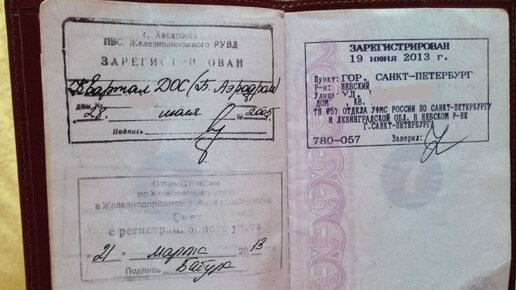 г. Хабаровск
ПВС Железнодорожного РУВД
ЗАРЕГИСТРИРОВАН
Квартал ДОС (б. Аэродром)
дом №
28 июля 2005
Подпись
ОУФМС России
по Хабаровскому краю
в Железнодорожном районе г. Хабаровска
Снят
с регистрационного учета
21 марта 2013
Подпись Батура
ЗАРЕГИСТРИРОВАН
19 июня 2013 г.
Пункт: ГОР. САНКТ-ПЕТЕРБУРГ
Р-н: НЕВСКИЙ
Улица УЛ.
ДОМ КВ.
ТП №57 ОТДЕЛА УФМС РОССИИ ПО САНКТ-ПЕТЕРБУРГУ
И ЛЕНИНГРАДСКОЙ ОБЛ. В НЕВСКОМ Р-НЕ
Г.САНКТ-ПЕТЕРБУРГА
780-057 Заверил: